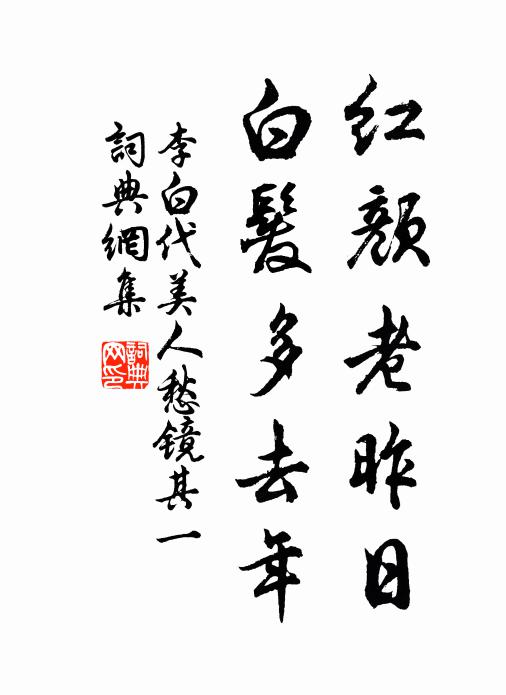 红颜老昨日
白髮多去年
李白代美人愁镜其一
詞典網集
詞典网印